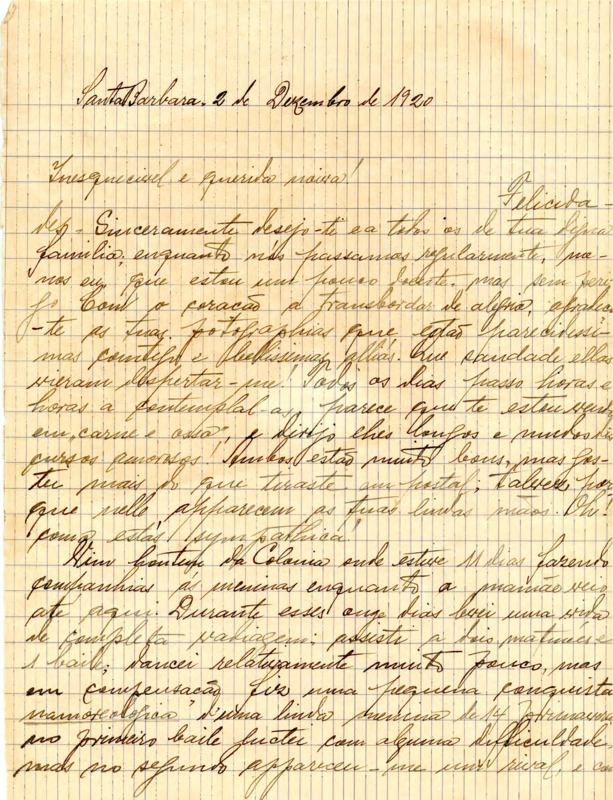 Santa Barbara. 2 de Dezembro de 1920
Inesquecivel e querida noiva!
Felicida-
des - Sinceramente desejo-te e a todos os de tua digna
familia, enquanto nós passamos regularmente, me-
nos eu, que estou um pouco doente, mas, sem peri-
go Com o coração a transbordar de alegria,
-te as tuas photographias que estão parecidissi-
mas comtigo e bellissimas alliás. Que saudade ellas
vieram despertar-me! Todos os dias passo horas e
horas a contemplal-as, parece que te estou vendo
em "carne e ossa", e dirijo lhes longos e mudos dis
cursos amorosos! Ambos estão muito bons, mas gos-
tei mais do que tiraste em postal; talvez por
que nelle apparecem as tuas lindas mãos. Oh!
como estás sympathica!
Vim hontem da Colonia onde estive 11 dias fazendo
companhias ás meninas enquanto a mamãe veio
até aqui. Durante esses onze dias levei uma vida
de completa vadiagem; assisti a dois matinées e
1 baile; dancei relativamente muito pouco, mas
em compensação fiz uma pequena conquista
"namorologica" d'uma linda menina de 14 primaveras
no primeiro baile luctei com alguma difficuldade
mas no segundo appareceu-me um rival, e com